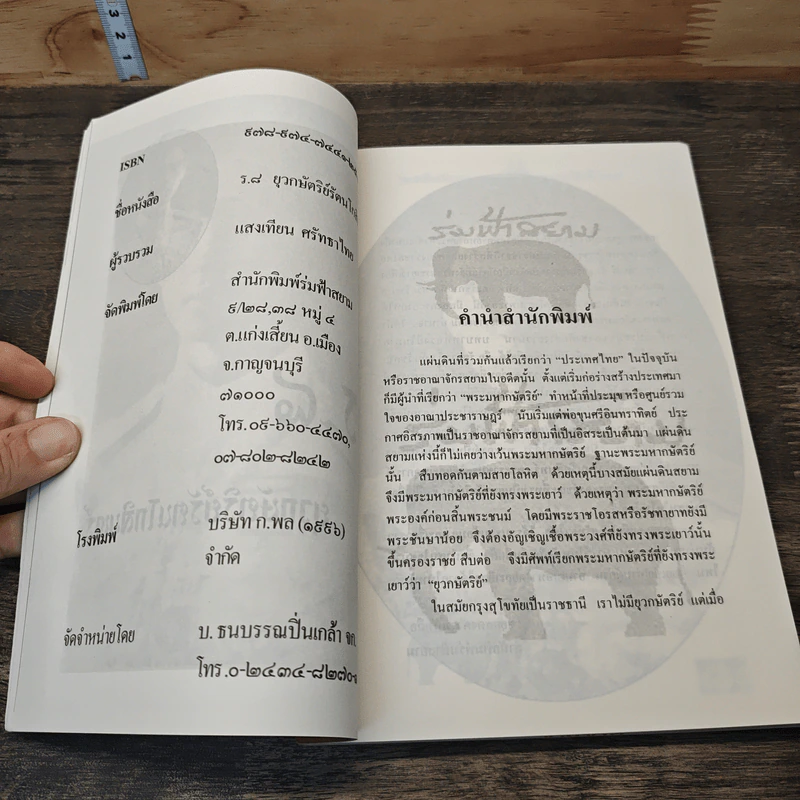 ISBN ๙๗๘-๙๗๔-๗๔๔๑-๒
ชื่อหนังสือ ร.๘ ยุวกษัตริย์รัตนโกสิ
ผู้รวบรวม แสงเทียน ศรัทธาไทย
จัดพิมพ์โดย สำนักพิมพ์ร่มฟ้าสยาม
๙/๒๘,๓๘ หมู่ ๔
ต.แก่งเสี้ยน อ.เมือง
จ.กาญจนบุรี
๗๑๐๐๐
โทร.๐๙-๖๖๐-๔๔๗๐,
๐๗-๘๐๒-๘๒๔๒
โรงพิมพ์ บริษัท ก.พล (๑๙๙๖)
จำกัด
จัดจำหน่ายโดย บ. ธนบรรณปิ่นเกล้า จก.
โทร.๐-๒๔๓๔-๘๒๗๐-
ร่มฟ้าสยาม
คำนำสำนักพิมพ์
แผ่นดินที่รวมกันแล้วเรียกว่า “ประเทศไทย” ในปัจจุบัน
หรือราชอาณาจักรสยามในอดีตนั้น ตั้งแต่เริ่มก่อร่างสร้างประเทศมา
ก็มีผู้นำที่เรียกว่า “พระมหากษัตริย์” ทำหน้าที่ประมุข หรือศูนย์รวม
ใจของอาณาประชาราษฎร์ นับเริ่มแต่พ่อขุนศรีอินทราทิตย์ ประ
กาศอิสรภาพเป็นราชอาณาจักรสยามที่เป็นอิสระเป็นต้นมา แผ่นดิน
สยามแห่งนี้ก็ไม่เคยว่างเว้นพระมหากษัตริย์ ฐานะพระมหากษัตริย์
นั้น สืบทอดกันตามสายโลหิต ด้วยเหตุนี้บางสมัยแผ่นดินสยาม
จึงมีพระมหากษัตริย์ที่ยังทรงพระเยาว์ ด้วยเหตุว่า พระมหากษัตริย์
พระองค์ก่อนสิ้นพระชนม์ โดยมีพระราชโอรสหรือรัชทายาทยังมี
พระชันษาน้อย จึงต้องอัญเชิญเชื้อพระวงศ์ที่ยังทรงพระเยาว์นั้น
ขึ้นครองราชย์ สืบต่อ จึงมีศัพท์เรียกพระมหากษัตริย์ที่ยังทรงพระ
เยาว์ว่า “ยุวกษัตริย์”
ในสมัยกรุงสุโขทัยเป็นราชธานี เราไม่มียุวกษัตริย์ แต่เมื่อ